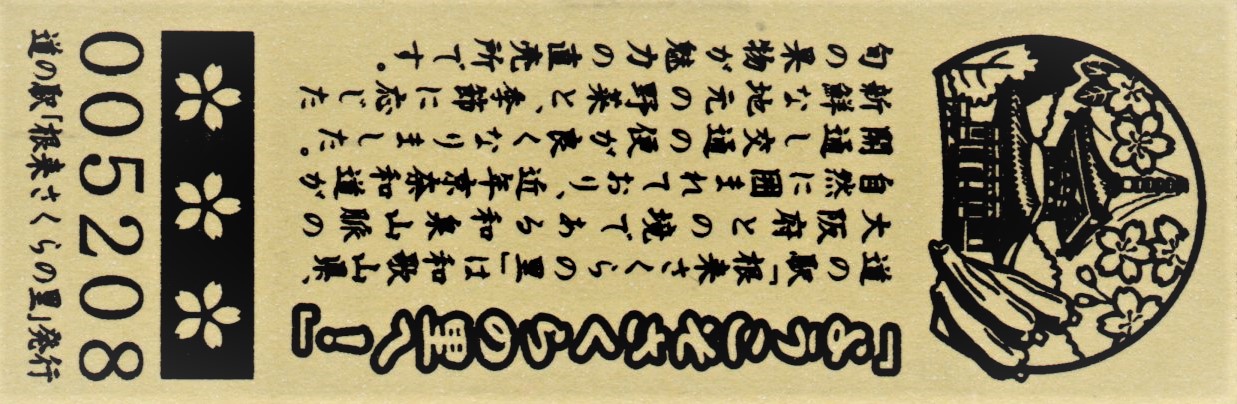 「ようこそさくらの里へ！」
道の駅「根来さくらの里」は和歌山県、
大阪府との境である和泉山脈の
自然に囲まれており、近年京奈和道が
開通し交通の便が良くなりました。
新鮮な地元の野菜と、季節に応じた
旬の果物が魅力の直売所です。
005208
道の駅「根来さくらの里」発行